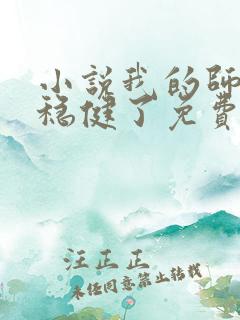 小說我的師
穩健了免費
汪正正
未经同意禁止转载